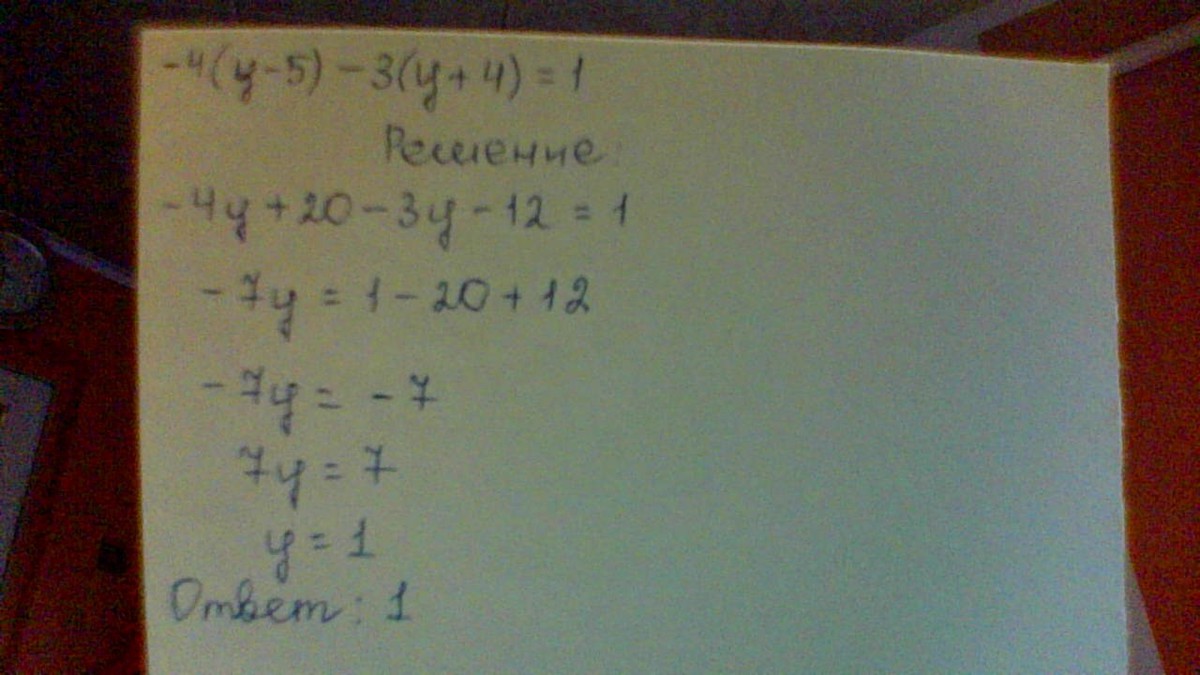 -4(y-5)-3(y+4)=1
Решение:
-4y+20-3y-12=1
-7y=1-20+12
-7y=-7
7y=7
y=1
Ответ: 1